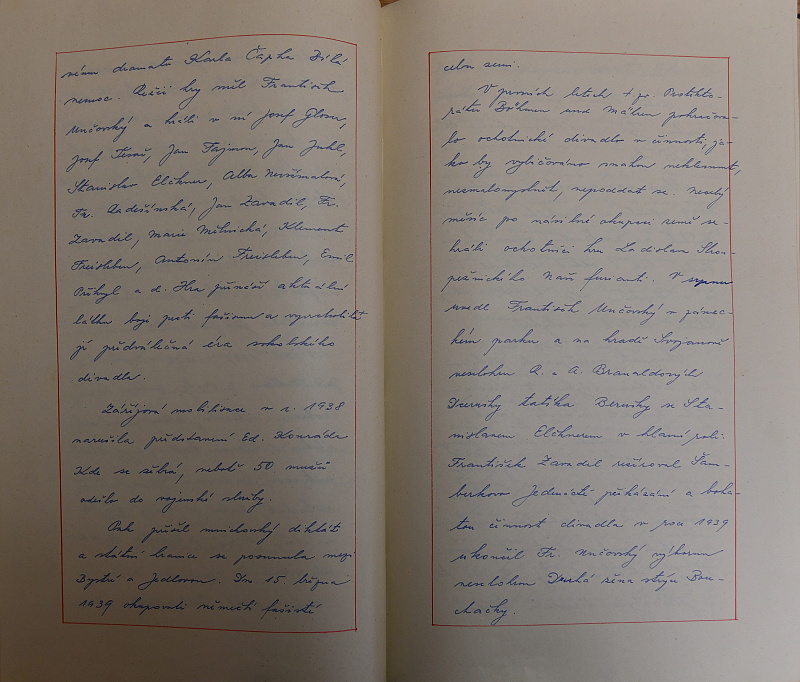 nému dramatu Karla Čapka Bílá
nemoc. Režii hry měl František
Unčovský a hráli v ní Josef Gloser,
Josef Teraš, Jan Fajmon, Jan Juhl,
Stanislav Elchner, Alba Nevšímalová,
Fr. Radešínská, Jan Zavadil, Fr.
Zavadil, Marie Mělnická, Klement
Freisleben, Antonín Freisleben, Emil
Přikryl a d. Hra přináší aktuální
látku boje proti fašismu a vyvrcholila
jí předválečná éra sokolského
divadla.
Zářijová mobilizace v r. 1938
narušila představení Ed. Konráda
Kde se žebrá, neboť 50 mužů
odešlo do vojenské služby.
Pak přišel mnichovský diktát
a státní hranice se posunula mezi
Bystré a Jedlovou. Dne 15. března
1939 okupovali němečtí fašisté
celou zemi.
V prvních letech t. zv. Protekto-
rátu Böhmen und Mähren pokračova-
lo ochotnické divadlo v činnosti, ja-
ko by vybičováno snahou neklesnout,
nezmalomyslnět, nepoddat se. Neselý
měsíc po násilné okupaci země se-
hráli ochotníci hru Ladislava Strou-
pežnického Naši furianti. V srpnu
uvedl František Unčovský v zámec-
kém parku a na hradě Svojanově
veselohru R. a A. Branaldových
Dcerušky tatíka Berušky se Sta-
nislavem Elchnerem v hlavní roli.
František Zavadil režíroval Šam-
berkovo Jedenácté přikázání a boha-
tou činnost divadla v roce 1939
ukončil Fr. Unčovský výbornou
veselohrou Druhá žena strýce Bou-
chačky.